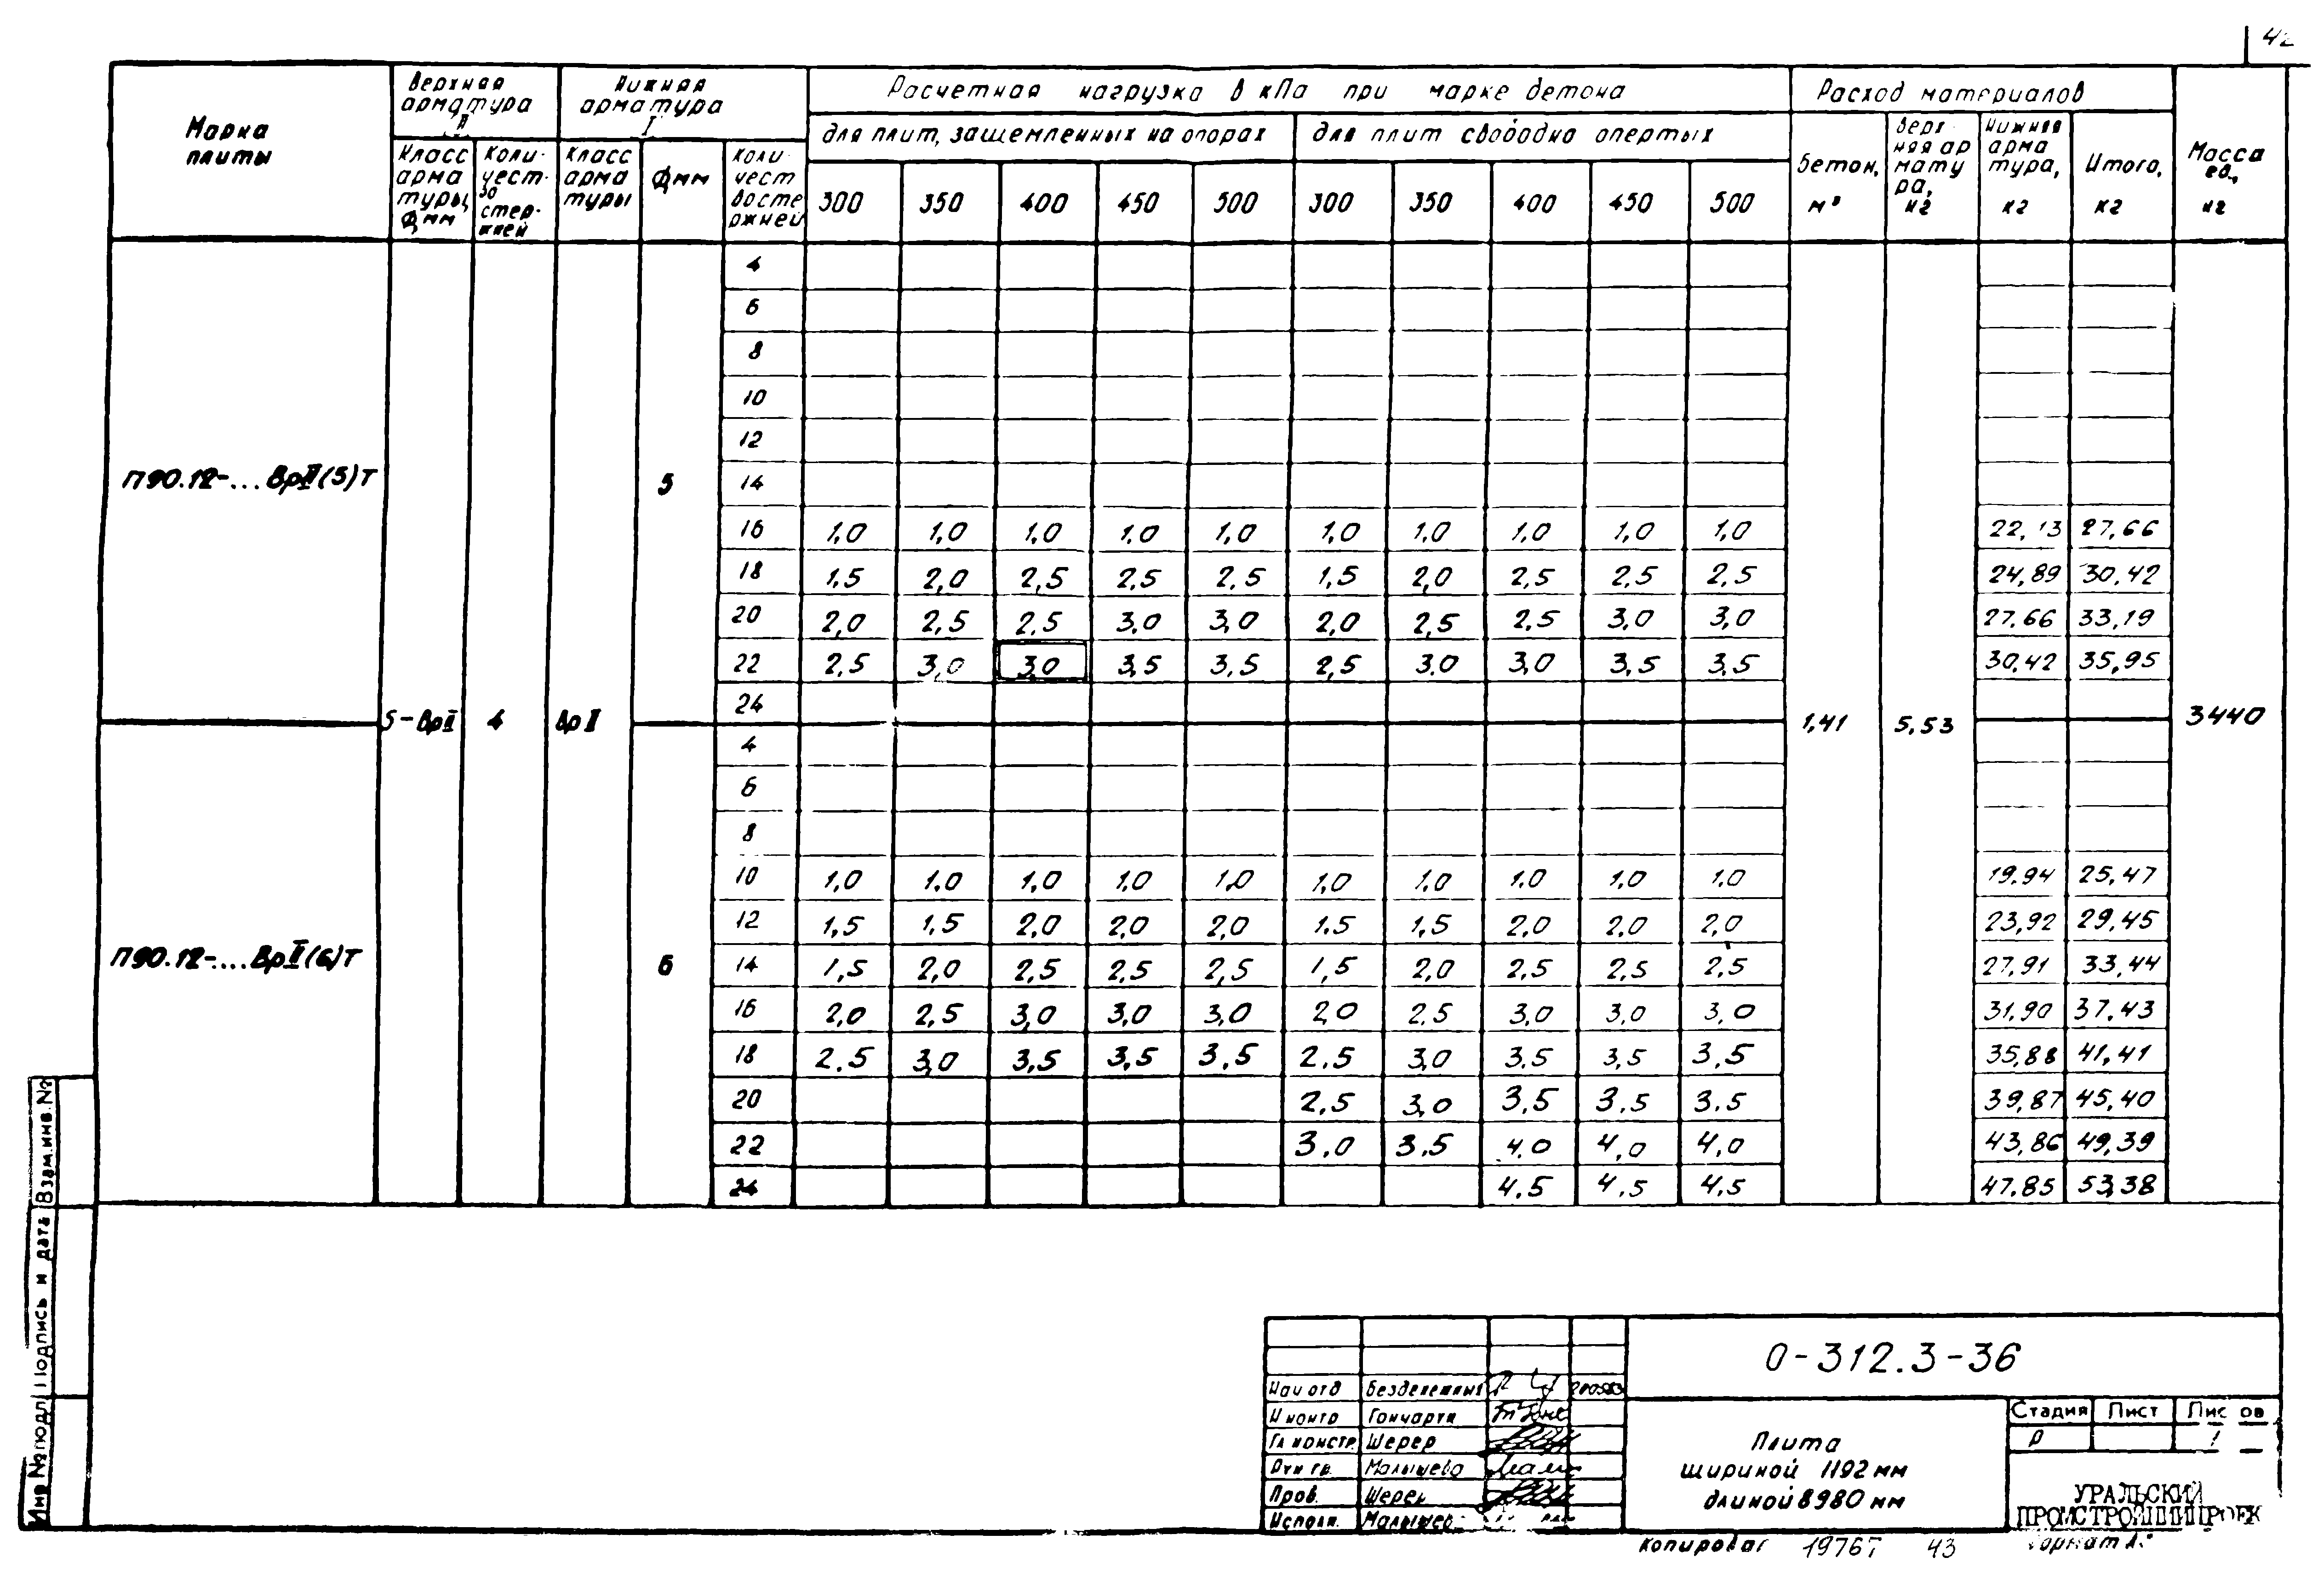 42
Марка плиты
Верхняя арматура
Нижняя арматура I
Расчетная нагрузка в кПа при марке бетона
Расход материалов
Масса ед., кг
для плит, защемленных на опорах
для плит свободно опертых
Класс арматуры, Фмм
Количество стержней
Класс арматуры
Фмм
Количество стержней
300 350 400 450 500 300 350 400 450 500
Бетон, м³
Верхняя арматура, кг
Нижняя арматура, кг
Итого, кг
П90.12-...ВрII(5)Т
5-ВрII 4 ВрII
5
4
6
8
10
12
14
16 1,0 1,0 1,0 1,0 1,0 1,0 1,0 1,0 1,0 1,0 22,13 27,66
18 1,5 2,0 2,5 2,5 2,5 1,5 2,0 2,5 2,5 2,5 24,89 30,42
20 2,0 2,5 2,5 3,0 3,0 2,0 2,5 2,5 3,0 3,0 27,66 33,19
22 2,5 3,0 3,0 3,5 3,5 2,5 3,0 3,0 3,5 3,5 30,42 35,95
24
1,41 5,53 3440
П90.12-...ВрII(6)Т
6
4
6
8
10 1,0 1,0 1,0 1,0 1,0 1,0 1,0 1,0 1,0 1,0 19,94 25,47
12 1,5 1,5 2,0 2,0 2,0 1,5 1,5 2,0 2,0 2,0 23,92 29,45
14 1,5 2,0 2,5 2,5 2,5 1,5 2,0 2,5 2,5 2,5 27,91 33,44
16 2,0 2,5 3,0 3,0 3,0 2,0 2,5 3,0 3,0 3,0 31,90 37,43
18 2,5 3,0 3,5 3,5 3,5 2,5 3,0 3,5 3,5 3,5 35,88 41,41
20 2,5 3,0 3,5 3,5 3,5 39,87 45,40
22 3,0 3,5 4,0 4,0 4,0 43,86 49,39
24 4,5 4,5 4,5 47,85 53,38
Взам.инв.№
Подпись и дата
Инв № подл
0-312.3-36
Нач отд
Н контр Гончарти
Гл констр. Шерер
Рук гр. Малышева
Пров. Шерер
Исполн. Малышев
Плита
шириной 1192 мм
длиной 8980 мм
Стадия Лист Лис ов
Р 1
УРАЛЬСКИЙ
ПРОМСТРОЙНИИПРОЕК
Копировал 19767 43 Формат